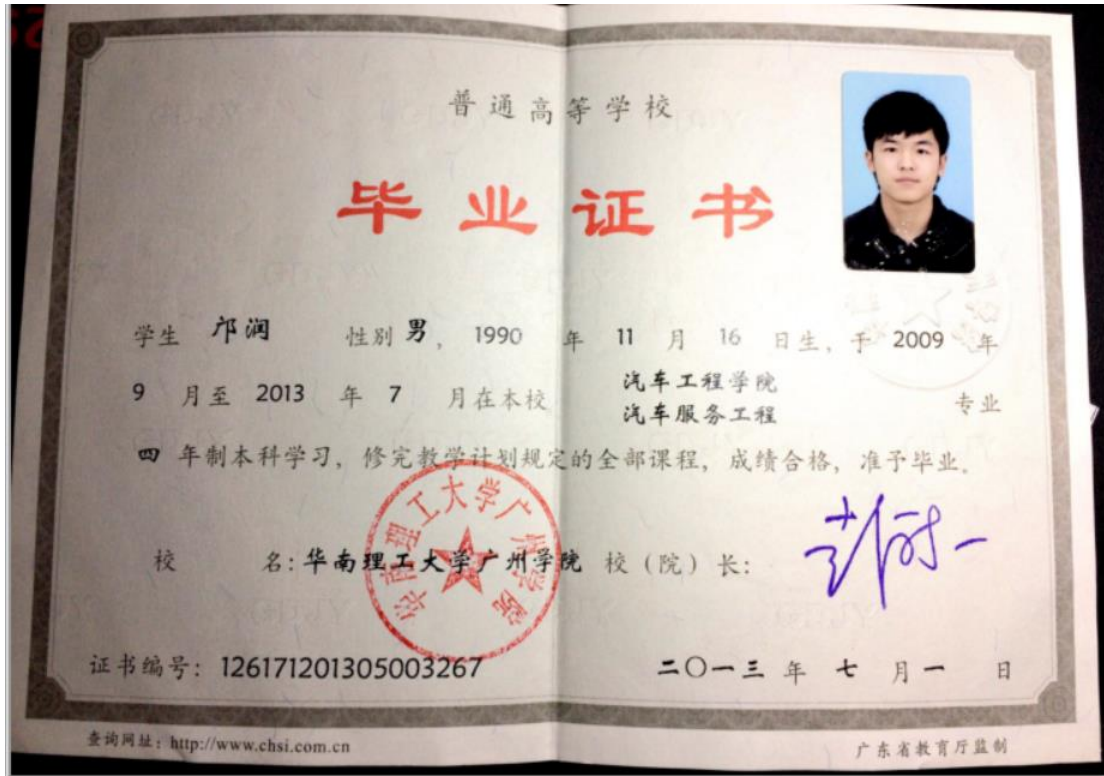 普通高等学校
毕业证书
学生 邝润 性别 男, 1990 年 11 月 16 日生, 于 2009 年
9 月至 2013 年 7 月在本校 汽车工程学院
汽车服务工程 专业
四 年制本科学习, 修完教学计划规定的全部课程, 成绩合格, 准予毕业。
校 名: 华南理工大学广州学院 校 (院) 长:
华南理工大学广州学院
证书编号: 126171201305003267 二〇一三 年 七 月 一 日
查询网址: http://www.chsi.com.cn 广东省教育厅监制